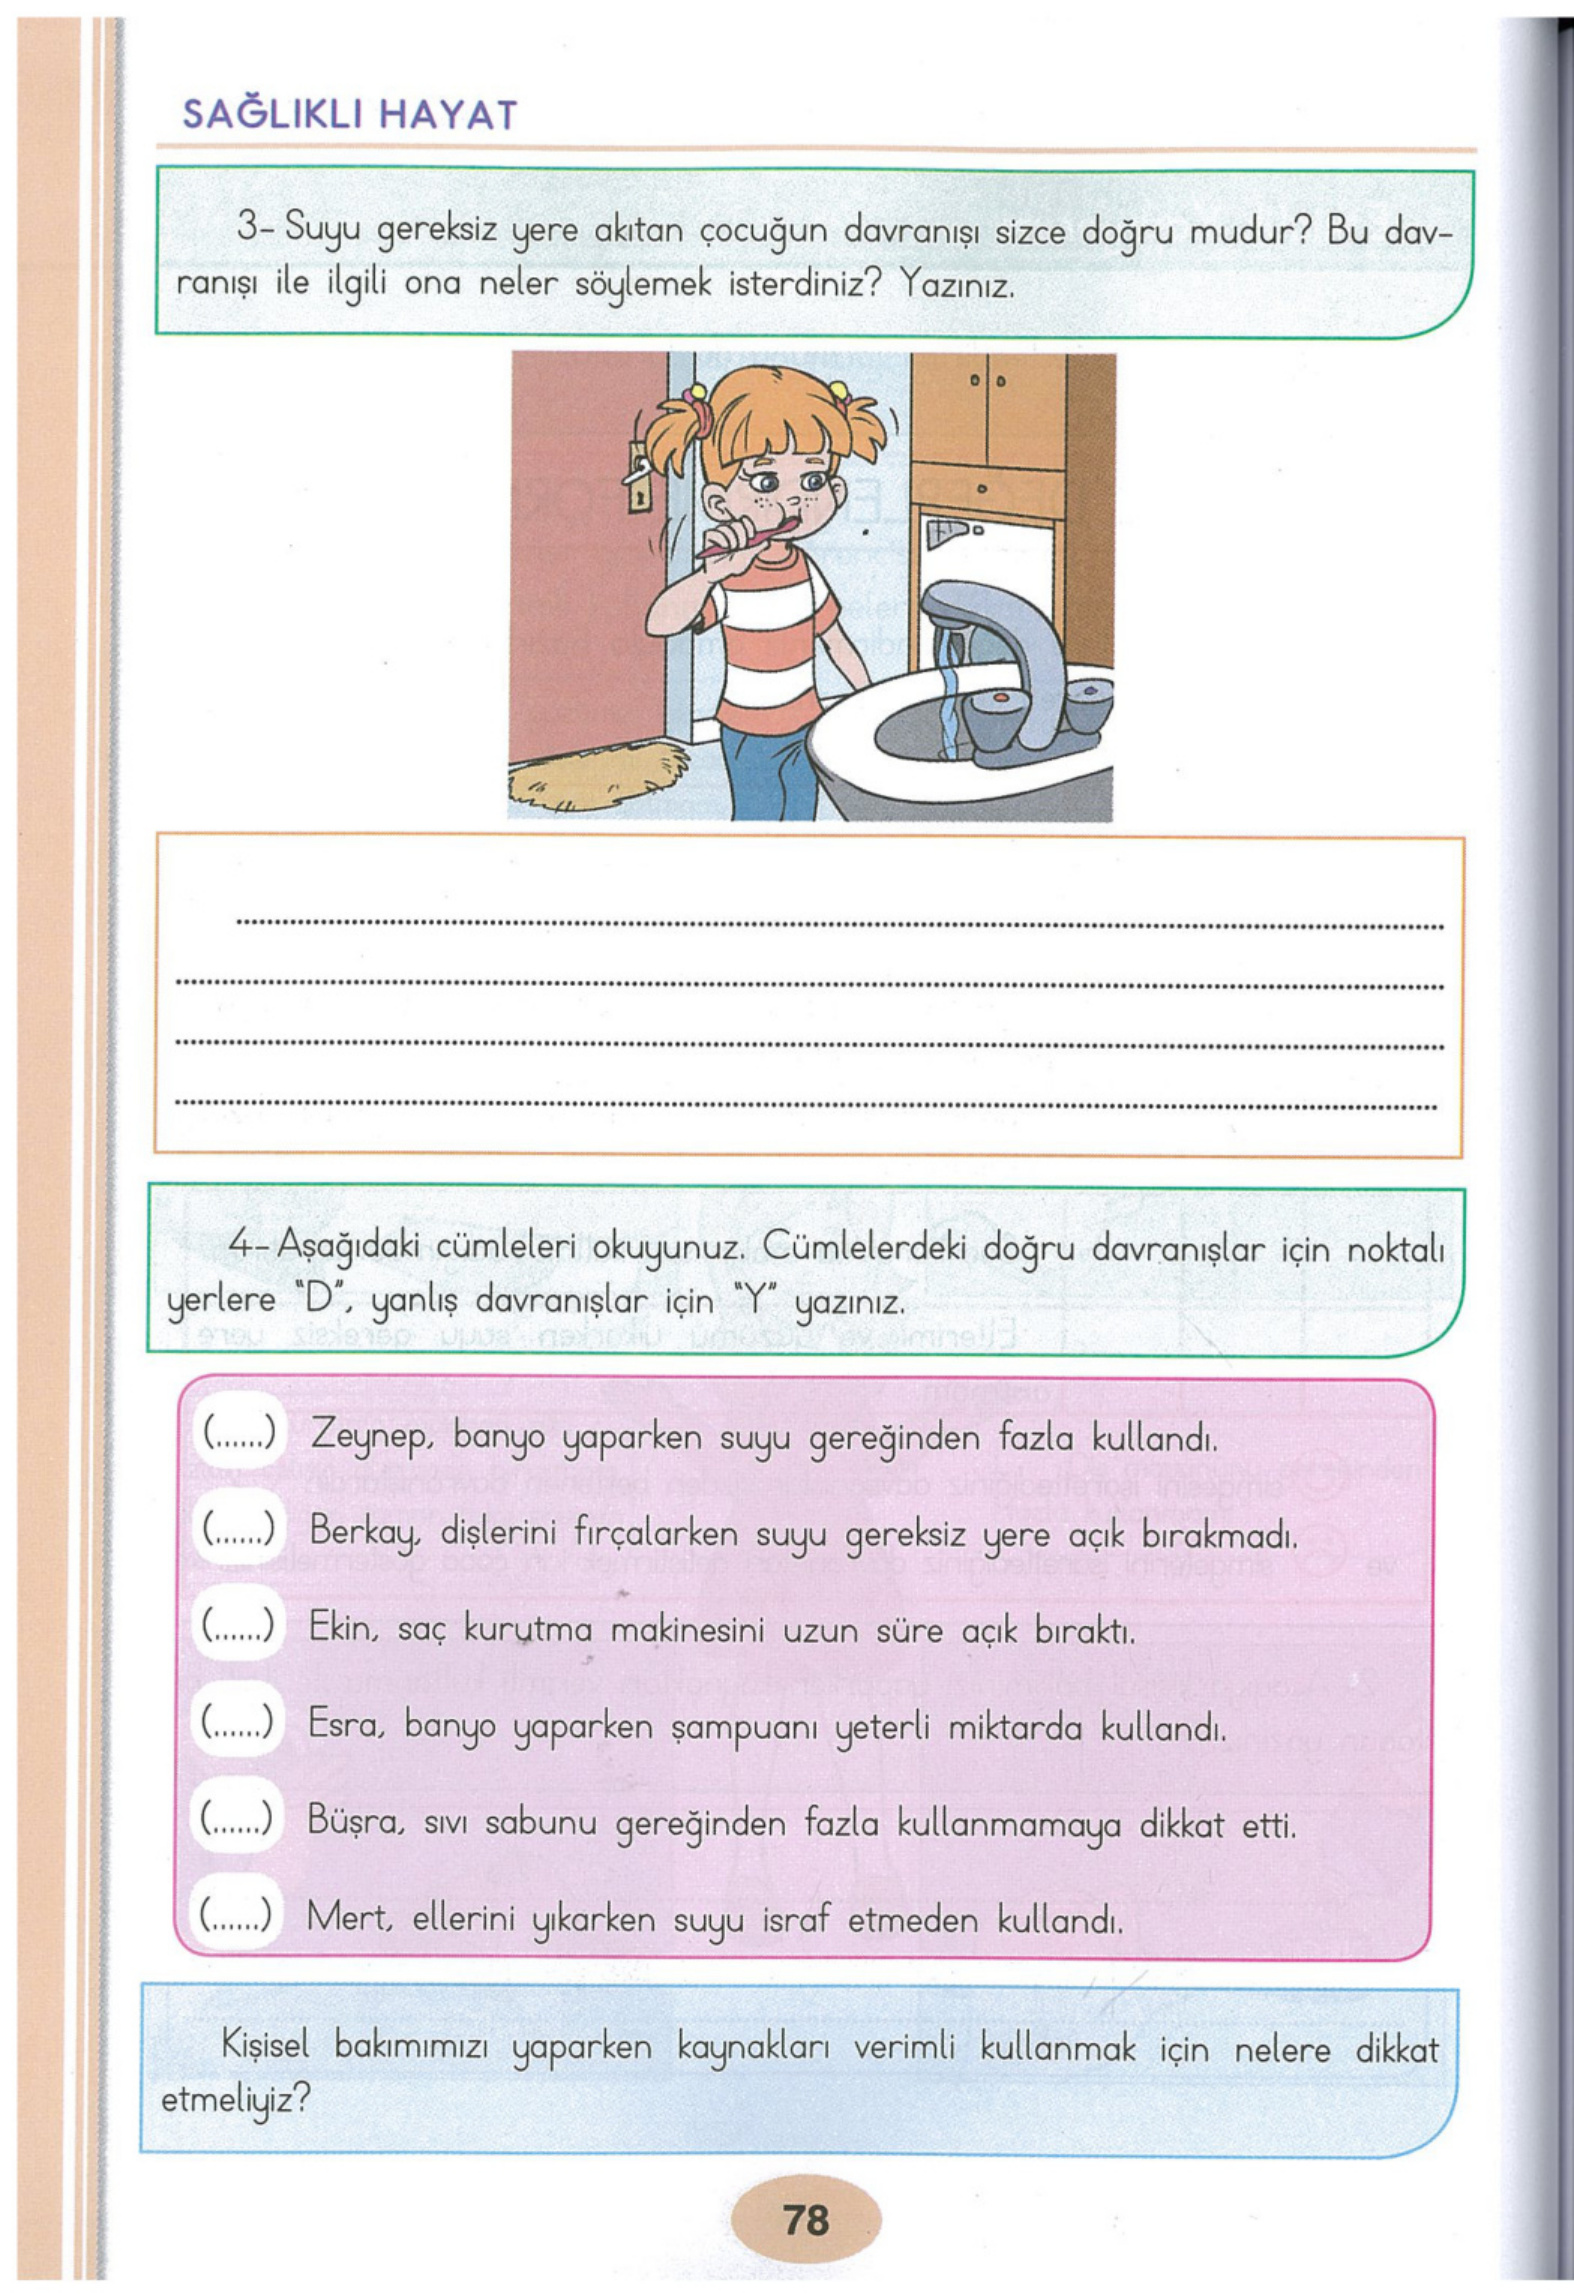 SAĞLIKLI HAYAT
3- Suyu gereksiz yere akıtan çocuğun davranışı sizce doğru mudur? Bu dav-
ranışı ile ilgili ona neler söylemek isterdiniz? Yazınız.
4- Aşağıdaki cümleleri okuyunuz. Cümlelerdeki doğru davranışlar için noktalı
yerlere "D", yanlış davranışlar için "Y" yazınız.
(......) Zeynep, banyo yaparken suyu gereğinden fazla kullandı.
(......) Berkay, dişlerini fırçalarken suyu gereksiz yere açık bırakmadı.
(......) Ekin, saç kurutma makinesini uzun süre açık bıraktı.
(......) Esra, banyo yaparken şampuanı yeterli miktarda kullandı.
(......) Büşra, sıvı sabunu gereğinden fazla kullanmamaya dikkat etti.
(......) Mert, ellerini yıkarken suyu israf etmeden kullandı.
Kişisel bakımımızı yaparken kaynakları verimli kullanmak için nelere dikkat
etmeliyiz?
78